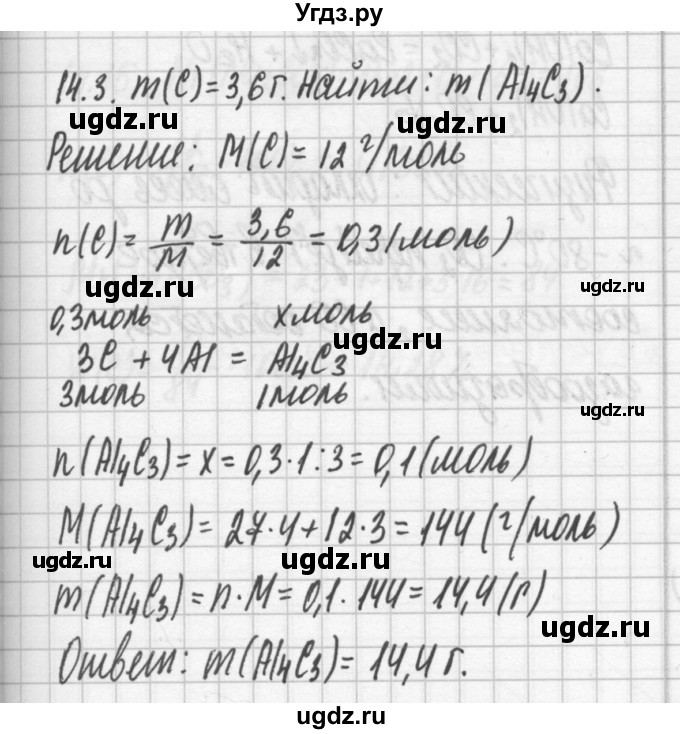 Угдз.ру
14.3. m(C)=3,6г. Найти: m(Al4C3).
ugdz.ru ugdz.ru
Решение: M(C)=12 г/моль
n(C)= m/M = 3,6/12 = 0,3(моль)
ugdz.ru ugdz.ru
0,3моль xмоль
ugdz.ru
3C + 4Al = Al4C3
3моль 1моль
ugdz.ru
n(Al4C3)=x=0,3·1:3=0,1(моль)
M(Al4C3)=27·4+12·3=144(г/моль)
ugdz.ru ugdz.ru
m(Al4C3)=n·M=0,1·144=14,4(г)
ugdz.ru
Ответ: m(Al4C3)=14,4г.
ugdz.ru